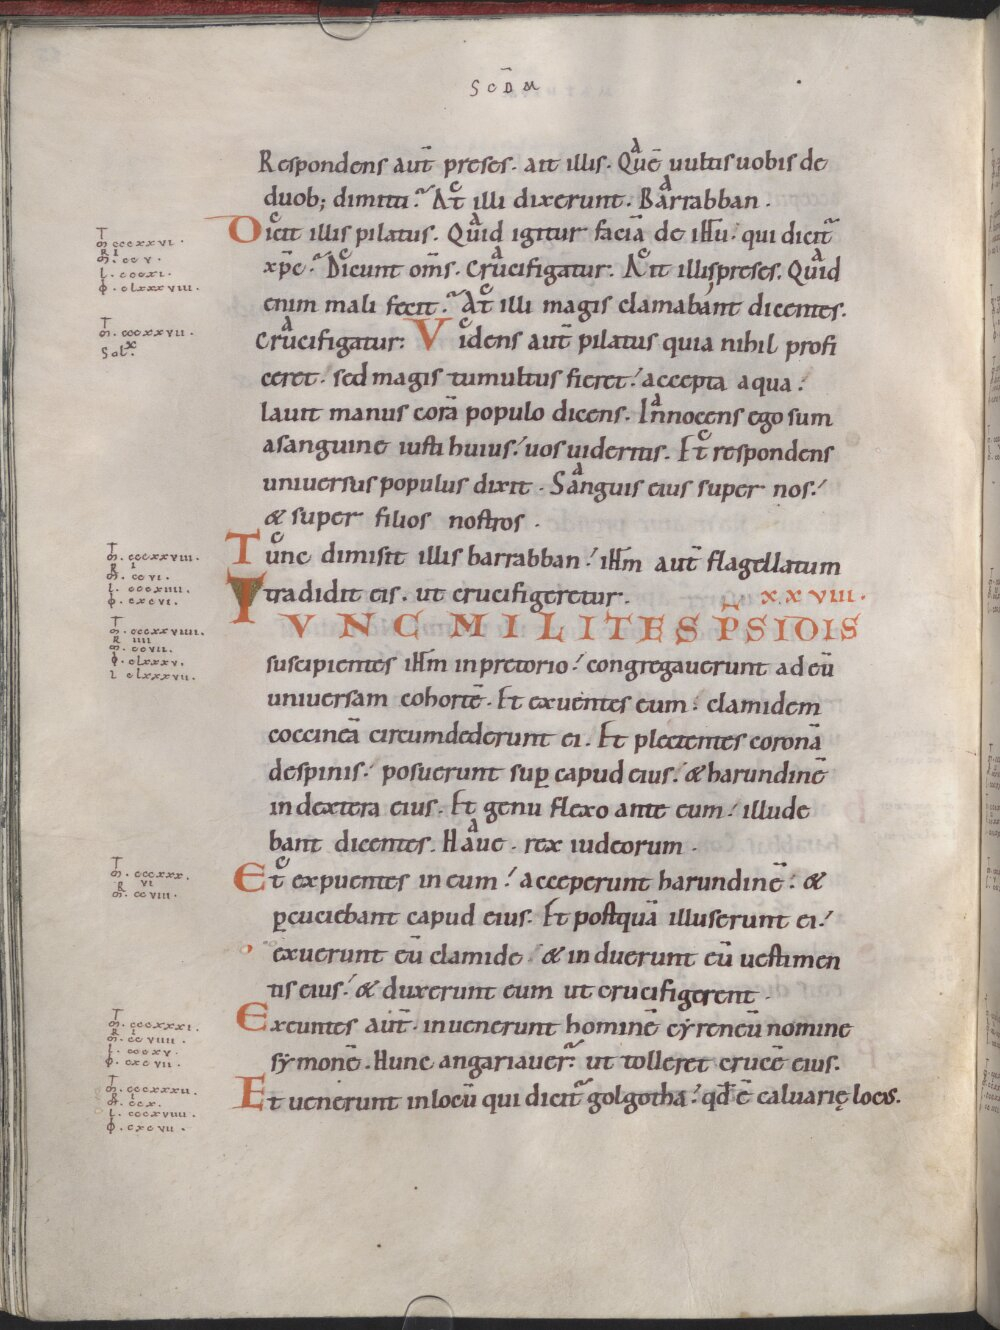 SCD̄M
Respondens aut̄ preses. ait illis. Quē uultis uobis de
duob; dimitti. At illi dixerunt. Barrabban.
Dicit illis pilatus. Quid igitur faciā de ih̄u. qui dicit̄
xp̄c. Dicunt om̄s. Crucifigatur. Ait illis preses. Quid
enim mali fecit. At illi magis clamabant dicentes.
Crucifigatur. Videns aut̄ pilatus quia nihil profi
ceret. sed magis tumultus fieret. accepta aqua.
lauit manus corā populo dicens. Innocens ego sum
a sanguine iusti huius. uos uideritis. Et respondens
universus populus dixit. Sanguis eius super nos.
& super filios nostros.
Tunc dimisit illis barrabban. ih̄m aut̄ flagellatum
tradidit eis. ut crucifigeretur. xxviii.
TVNC MILITES P̄SIDIS
suscipientes ih̄m in pretorio. congregauerunt ad eū
uniuersam cohortē. Et exuentes eum. clamidem
coccineā circumdederunt ei. Et plectentes coronā
despinis. posuerunt sup̱ capud eius. & harundinē
in dextera eius. Et genu flexo ante eum. illude
bant dicentes. Haue. rex iudeorum.
Et expuentes in eum. acceperunt harundinē. &
p̱cuciebant capud eius. Et postquā illuserunt ei.
exuerunt eū clamide. & induerunt eū uestimen
tis eius. & duxerunt eum ut crucifigerent.
Exeuntes aut̄. inuenerunt hominē cẏreneū nomine
sẏmonē. Hunc angariauer̄. ut tolleret crucē eius.
Et uenerunt in locū qui dicit̄ golgotha. qđ ē caluarię locus.